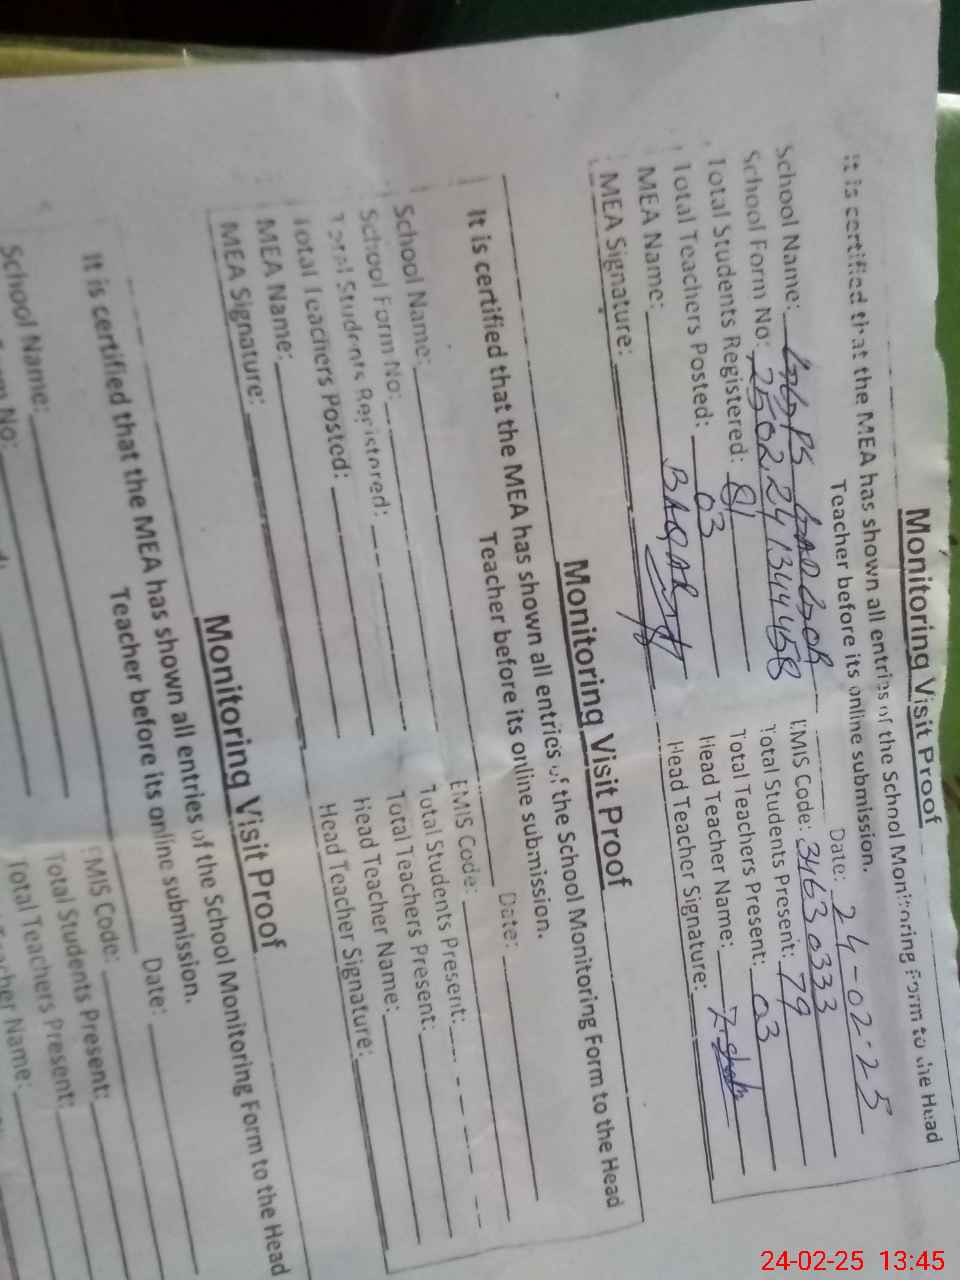 Monitoring Visit Proof
It is certified that the MEA has shown all entries of the School Monitoring Form to the Head
Teacher before its online submission.
Date: 24-02-25
School Name: PS
EMIS Code: 34630333
School Form No: 250224134458
Total Students Present: 79
Total Students Registered: 81
Total Teachers Present: 03
Total Teachers Posted: 03
Head Teacher Name:
MEA Name: BAQAR
Head Teacher Signature:
MEA Signature:
Monitoring Visit Proof
It is certified that the MEA has shown all entries of the School Monitoring Form to the Head
Teacher before its online submission.
Date:
School Name:
EMIS Code:
School Form No:
Total Students Present:
Total Students Registered:
Total Teachers Present:
Total Teachers Posted:
Head Teacher Name:
MEA Name:
Head Teacher Signature:
MEA Signature:
Monitoring Visit Proof
It is certified that the MEA has shown all entries of the School Monitoring Form to the Head
Teacher before its online submission.
Date:
School Name:
EMIS Code:
No:
Total Students Present:
Total Teachers Present:
Name:
24-02-25 13:45